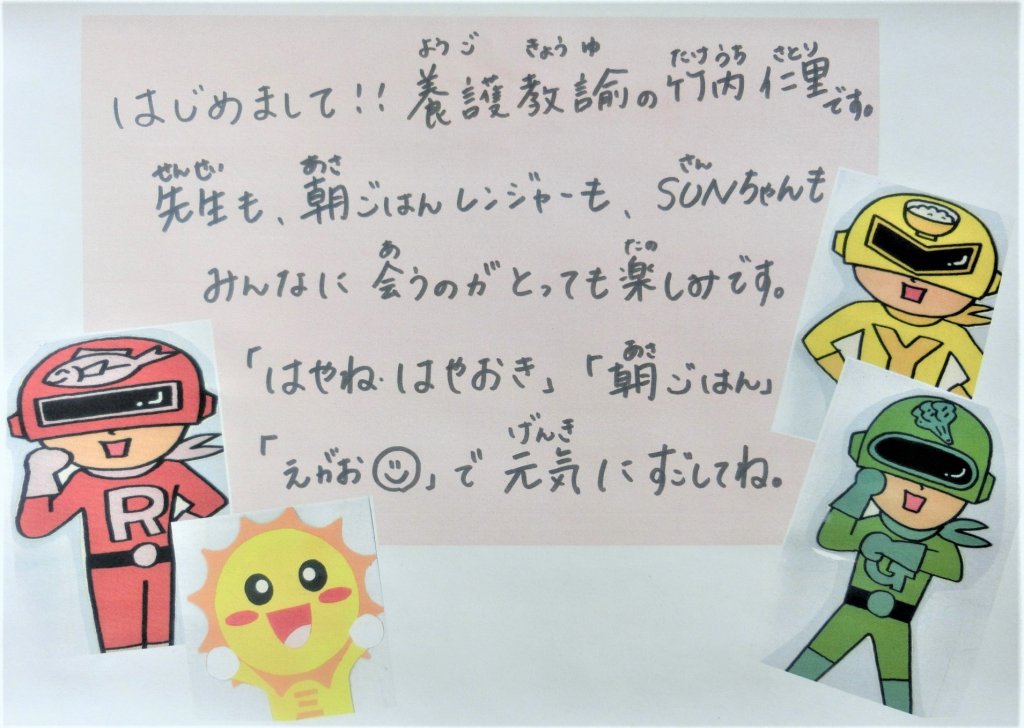 ようご きょうゆ たけうち さとり
はじめまして!! 養護教諭の竹内 仁里です。
せんせい あさ さん
先生も、朝ごはんレンジャーも、SUNちゃんも
あ たの
みんなに 会うのが とっても楽しみです。
あさ
「はやね・はやおき」「朝ごはん」
げんき
「えがお☺」で 元気に すごしてね。
R
Y
G
三